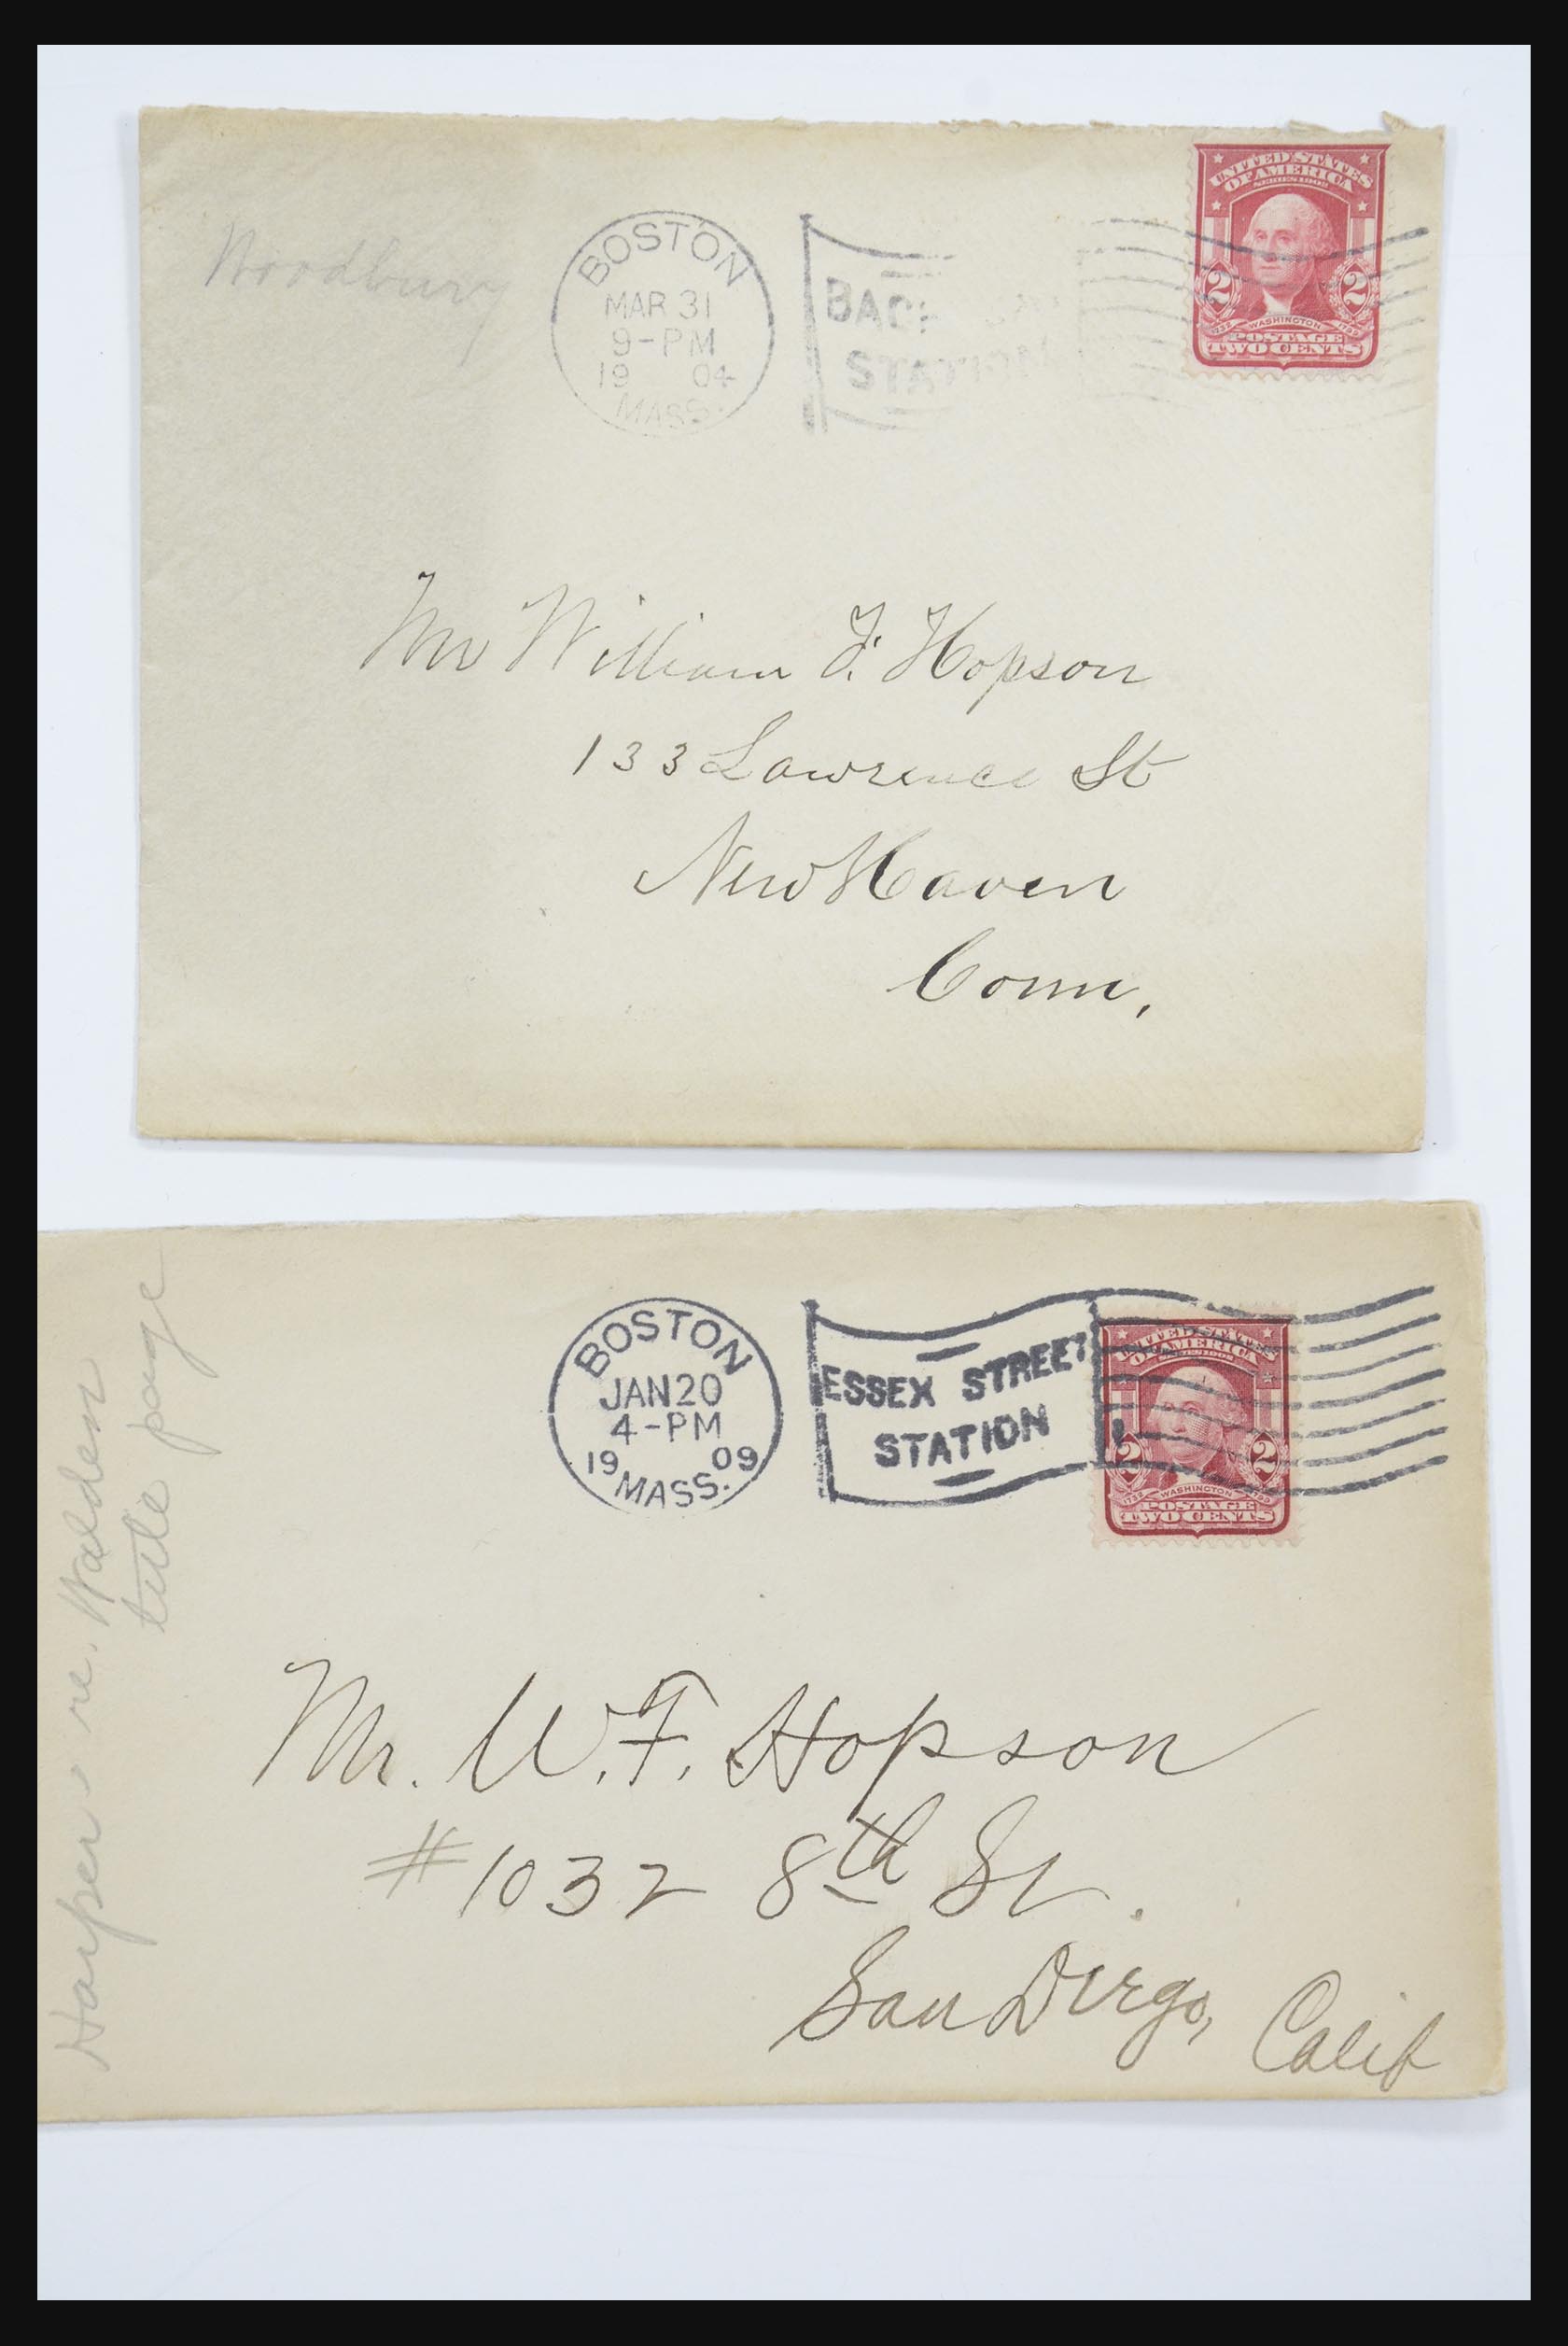 Woodbury
BOSTON
MAR 31
9-PM
19 04
MASS.
STATION
UNITED STATES
OF AMERICA
SERIES 1902
2 2
1732 WASHINGTON 1799
POSTAGE
TWO CENTS
Mr William F. Hopson
133 Lawrence St
New Haven
Conn.
BOSTON
JAN 20
4-PM
19 09
MASS.
ESSEX STREET
STATION
UNITED STATES
OF AMERICA
SERIES 1902
2 2
1732 WASHINGTON 1799
POSTAGE
TWO CENTS
Harper's re. Walden
title page
Mr. W. F. Hopson
#1032 8th St.
San Diego, Calif